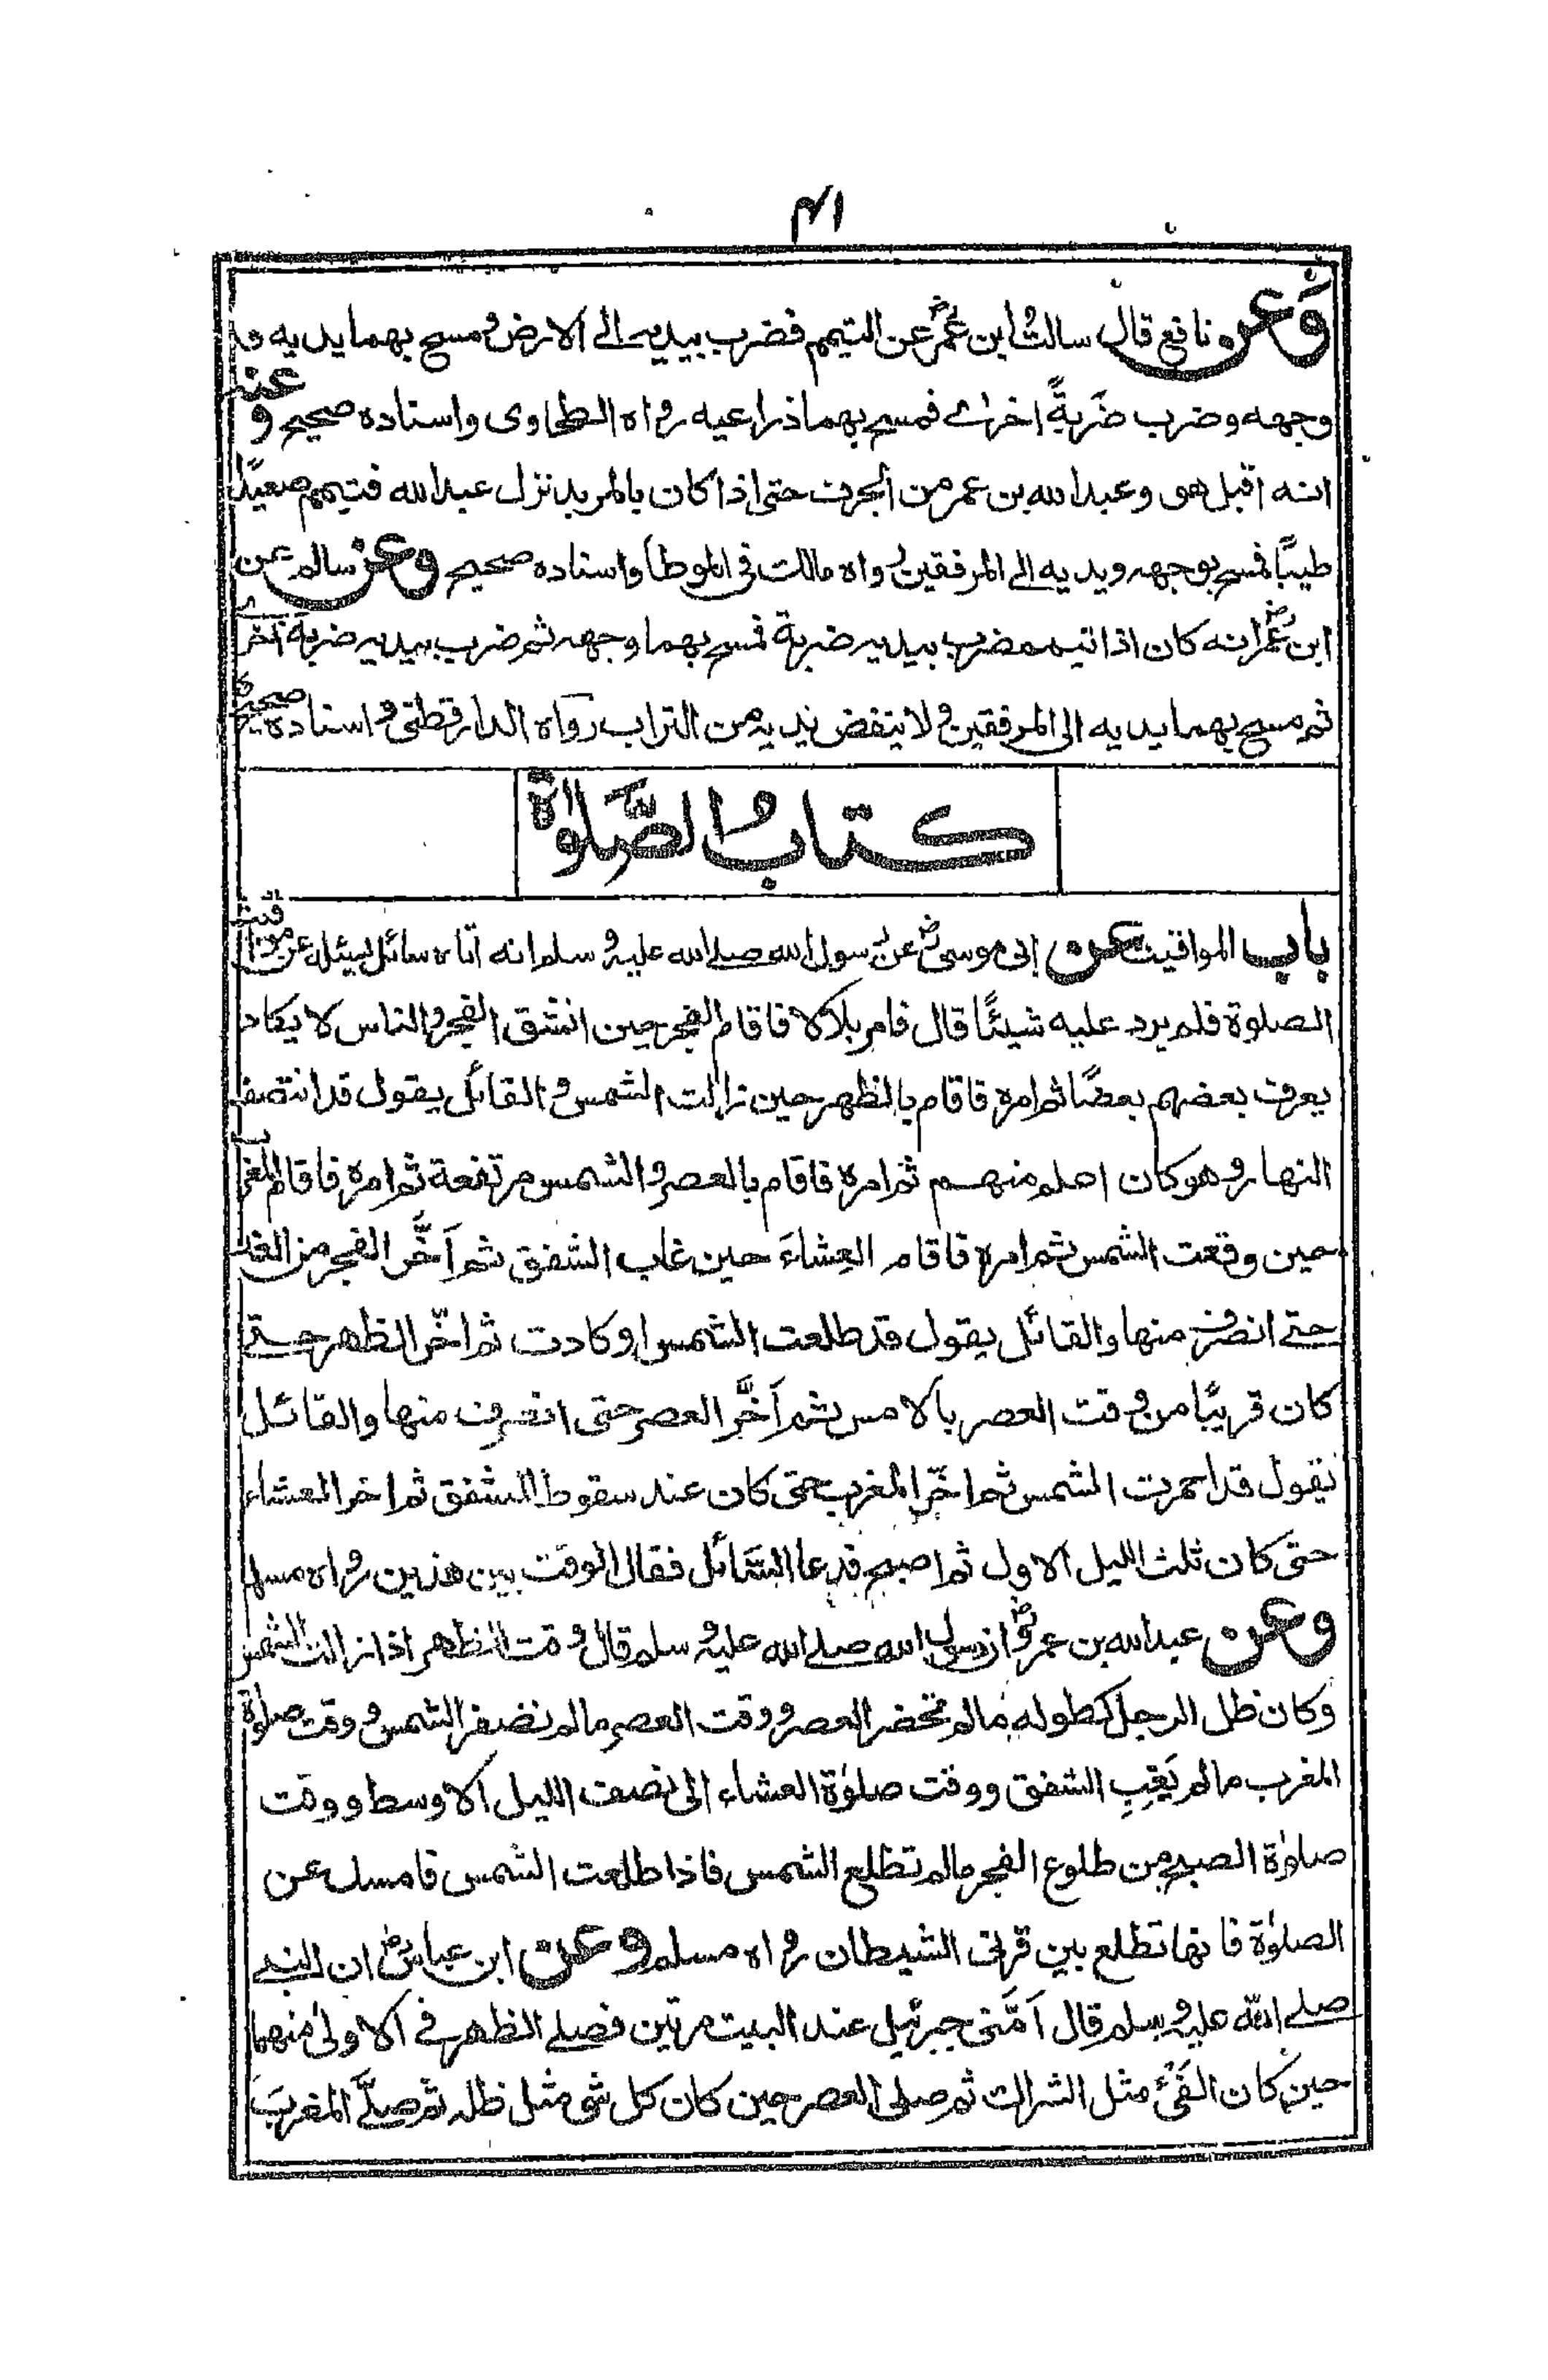 ٤١
وَعن نافع قال سالتُ ابن عُمرؓ عن التيمم فضرب بيديه الے الارض ومسح بهما يديه و
وجهه وضرب ضَربةً اخرٰے فمسح بهما ذراعيه رواه الطحاوى واسناده صحيح و عنه
انه اقبل هو وعبدالله بن عمر من الجرف حتى اذا كان بالمربد نزل عبدالله فتيمم صعيدًا
طيبًا فمسح بوجهه ويديه الے المرفقين رواه مالك فى الموطأ واسناده صحيح وعن سالم عن
ابن عُمرؓ انه كان اذا تيمم ضرب بيديه ضربة فمسح بهما وجهه ثم ضرب بيديه ضربة اخرٰے
ثم مسح بهما يديه الى المرفقين ولا ينفض يديه من التراب رَواه الدارقطنى واسناده صحيح
كتابُ الصَّلوٰة
باب المواقيت عن ابى موسىؓ عن رسول الله صلے الله عليه وسلم انه اتاه سائل يسئله عن مواقيت
الصلوة فلم يرد عليه شيئًا قال فامر بلالا فاقام الفجر حين انشق الفجر والناس لا يكاد
يعرف بعضهم بعضًا ثم امره فاقام بالظهر حين زالت الشمس والقائل يقول قد انتصف
النهار وهو كان اعلم منهم ثم امره فاقام بالعصر والشمس مرتفعة ثم امره فاقام المغرب
حين وقعت الشمس ثم امره فاقام العِشاءَ حين غاب الشفق ثم اَخَّر الفجر من الغد
حتے انصرف منها والقائل يقول قد طلعت الشمس او كادت ثم اخّر الظهر حتے
كان قريبًا من وقت العصر بالامس ثم اَخَّر العصر حتى انصرف منها والقائل
يقول قد احمرت الشمس ثم اخّر المغرب حتى كان عند سقوط الشفق ثم اخر العشاء
حتى كان ثلث الليل الاول ثم اصبح فدعا السَّائل فقال الوقت بين هذين رواه مسلم
وعن عبدالله بن عمروؓ ان رسول الله صلے الله عليه وسلم قال وقت الظهر اذا زالت الشمس
وكان ظل الرجل كطوله مالم تحضر العصر ووقت العصر مالم تصفر الشمس ووقت صلوٰة
المغرب مالم يَغِبِ الشفق ووقت صلوٰة العشاء الى نصف الليل الاوسط ووقت
صلوٰة الصبح من طلوع الفجر مالم تطلع الشمس فاذا طلعت الشمس فامسك عن
الصلوٰة فانها تطلع بين قرنى الشيطان رواه مسلم وعن ابن عباسؓ ان النبے
صلے الله عليه وسلم قال اَمَّنى جبرئيل عند البيت مرتين فصلے الظهر فے الاولىٰ منهما
حين كان الفَئُ مثل الشراك ثم صلى العصر حين كان كل شئ مثل ظله ثم صلَّے المغربَ